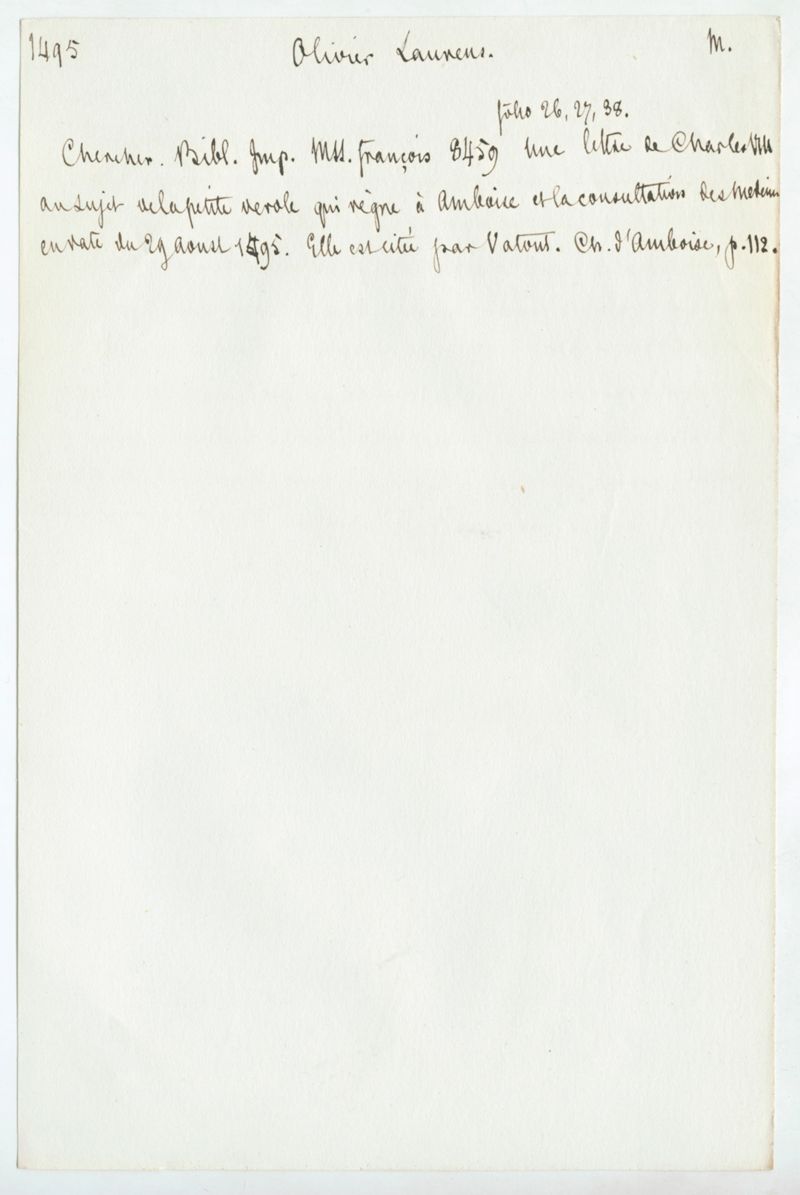 1495 Olivier Laurens. M.
folio 26, 27, 38.
Chercher. Bibl. Imp. MSS. français 8459 Une lettre de Charles VIII
au sujet de la petite verole qui règne à Amboise et la consultation des médecins
en date du 29 aoust 1495. Elle est citée par Vatout. Ch. d'Amboise, p. 112.